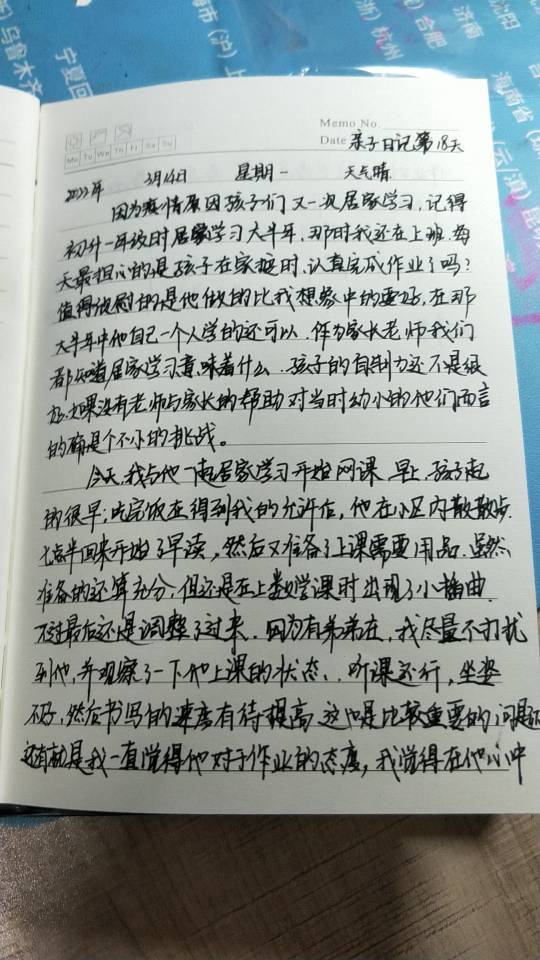 (沪)上
宁夏回
济南
沈阳
合肥
(浙)杭州
海南省
(云)滇)昆
Memo No.
Mo Tu We Th Fr Sa Su
Date 亲子日记第18天
2022年 3月14日 星期一 天气晴
因为疫情原因孩子们又一次居家学习,记得
初升一年级时居家学习大半年,那时我还在上班.每
天最担心的是孩子在家按时、认真完成作业了吗?
值得欣慰的是他做的比我想象中的要好,在那
大半年中他自己一个人学的还可以.作为家长老师我们
都知道居家学习意味着什么.孩子的自制力还不是很
好,如果没有老师与家长的帮助对当时幼小的他们而言
的确是个不小的挑战。
今天,我与他一起居家学习开始网课.早上,孩子起
的很早;吃完饭在得到我的允许后,他在小区内散散步.
七点半回来开始了早读,然后又准备了上课需要用品.虽然
准备的还算充分,但还是在上数学课时出现了小插曲.
不过最后还是调整了过来.因为有弟弟在,我尽量不打扰
到他,并观察了一下他上课的状态.听课还行,坐姿
不好,然后书写的速度有待提高.这也是比较重要的问题
还有就是我一直觉得他对于作业的态度,我觉得在他心中